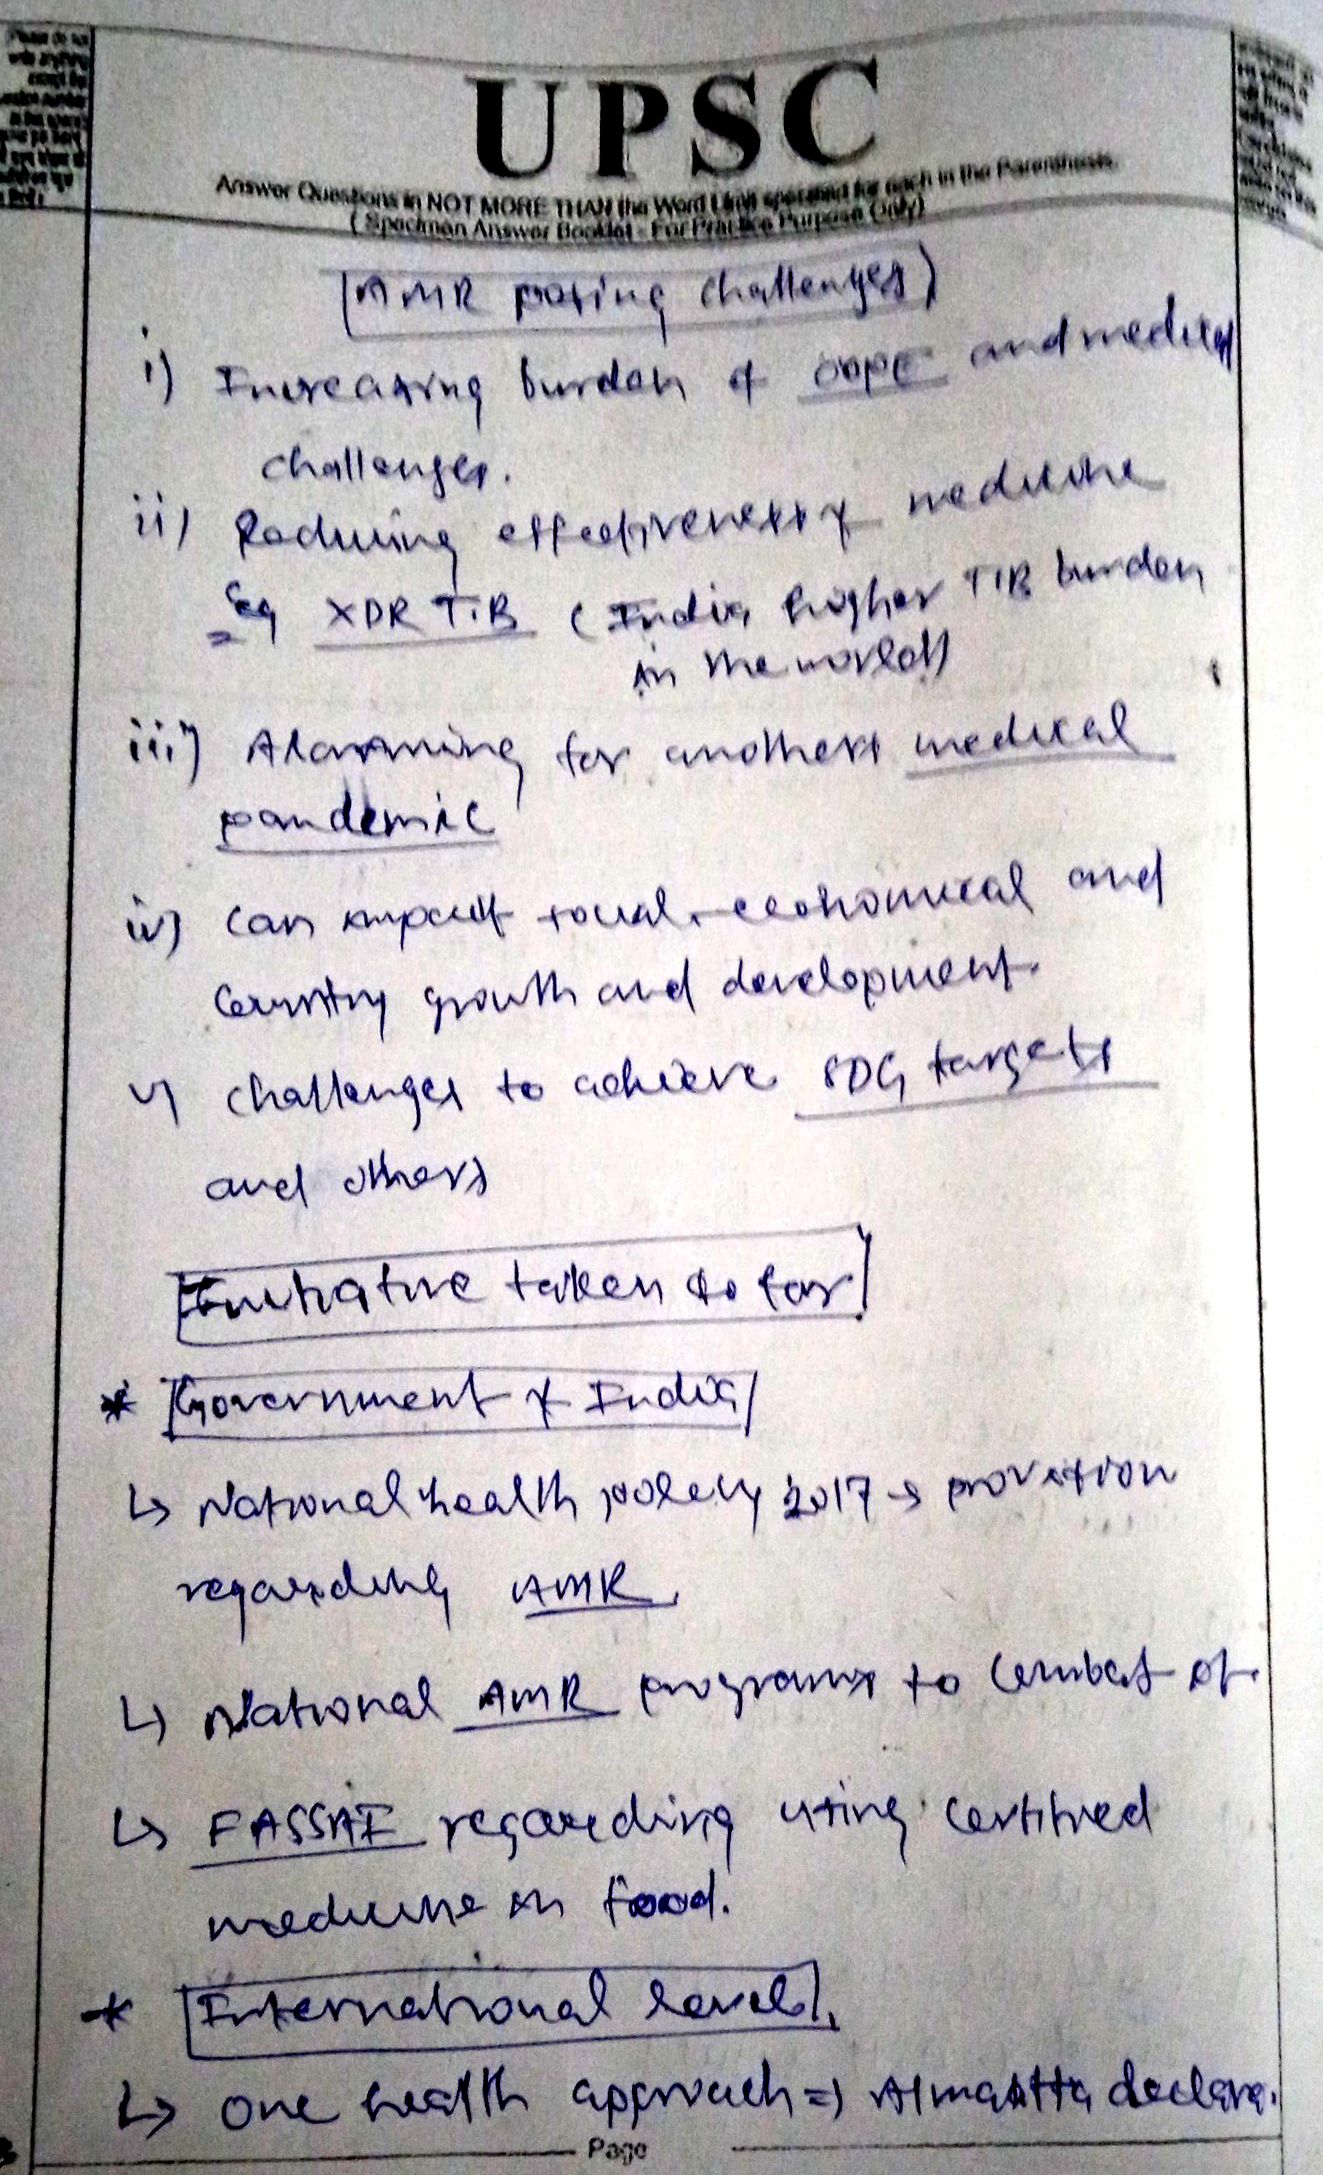 UPSC
Answer Questions in NOT MORE THAN the Word Limit specified for each in the Parenthesis.
( Specimen Answer Booklet - For Practice Purpose Only)
AMR posing challenges
i) Increasing burden of OOPE and medical
challenges.
ii) Reducing effectiveness of medicine
Eg XDR T.B (India higher TB burden
in the world)
iii) Alarming for another medical
pandemic
iv) Can impact social-economical and
Country growth and development.
v) Challenges to achieve SDG targets
and others
Initiative taken so far
* Government of India
↳ National health policy 2017 → provision
regarding AMR.
↳ National AMR programs to combat of.
↳ FASSAI regarding using certified
medicine in food.
* International level
↳ One health approach ⇒ Almaatta declara.
Page